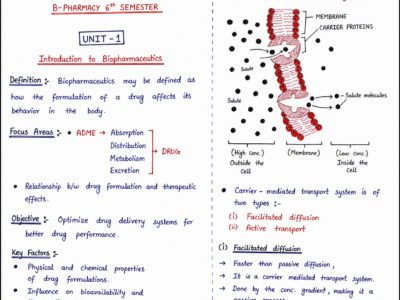 B-PHARMACY 6th SEMESTER
UNIT-1
Introduction to Biopharmaceutics
Definition :- Biopharmaceutics may be defined as
how the formulation of a drug affects its
behavior in the body.
Focus Areas :- • ADME → Absorption
Distribution
Metabolism
Excretion
→ DRUG
• Relationship b/w drug formulation and therapeutic
effects.
Objective :- Optimize drug delivery systems for
better drug performance.
Key Factors :-
• Physical and chemical properties
of drug formulations.
• Influence on bioavailability and
MEMBRANE
CARRIER PROTEINS
Solute
Solute
Solute molecules
(High conc.)
Outside the
Cell
(Membrane)
(Low conc.)
Inside the
Cell
• Carrier-mediated transport system is of
two types :-
(i) Facilitated diffusion
(ii) Active transport
(i) Facilitated diffusion
→ Faster than passive diffusion,
→ It is a carrier mediated transport system.
→ Done by the conc. gradient, making it a